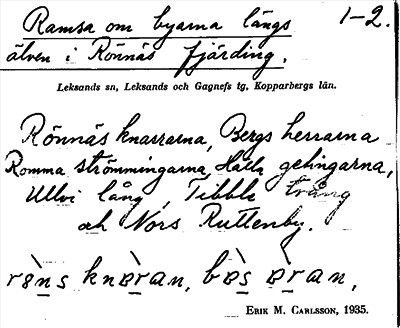 Ramsa om byarna längs 1-2.
älven i Rönnäs fjärding.
Leksands sn, Leksands och Gagnefs tg, Kopparbergs län.
Rönnäs knarrarna, Bergs herrarna
Romma strömmingarna, Hälla getingarna,
Ullvi lång, Tibble trång
ah Nors Ruttenby.
ERIK M. CARLSSON, 1935.